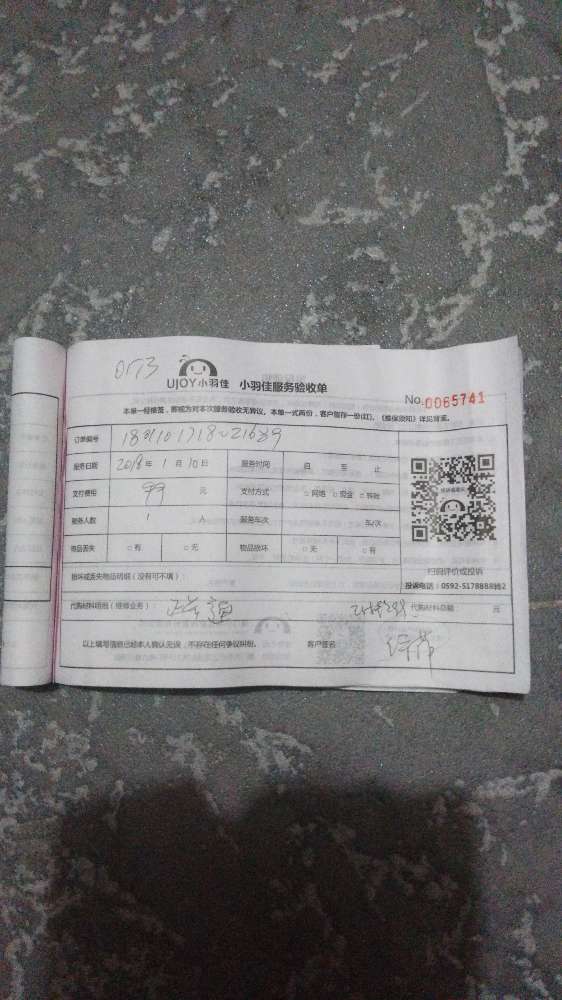 0573
UJOY小羽佳 小羽佳服务验收单
No. 0065741
本单一经接签，即视为对本次服务验收无异议。本单一式两份，客户留存一份(红)。《维保须知》详见背面。
订单编号
服务日期 2018年 1月 10日 服务时间 自 至 止
支付费用 99 元 支付方式 □网络 □现金 □转账
服务人数 1 人 服务车次 车/次
物品丢失 □有 □无 物品损坏 □无 □有
扫码评价或投诉
损坏或丢失物品明细（没有可不填）
投诉电话：0592-5178888转2
代购材料明细（维修业务）： 代购材料总额 元
以上填写信息已经本人确认无误，不存在任何争议纠纷。 客户签名